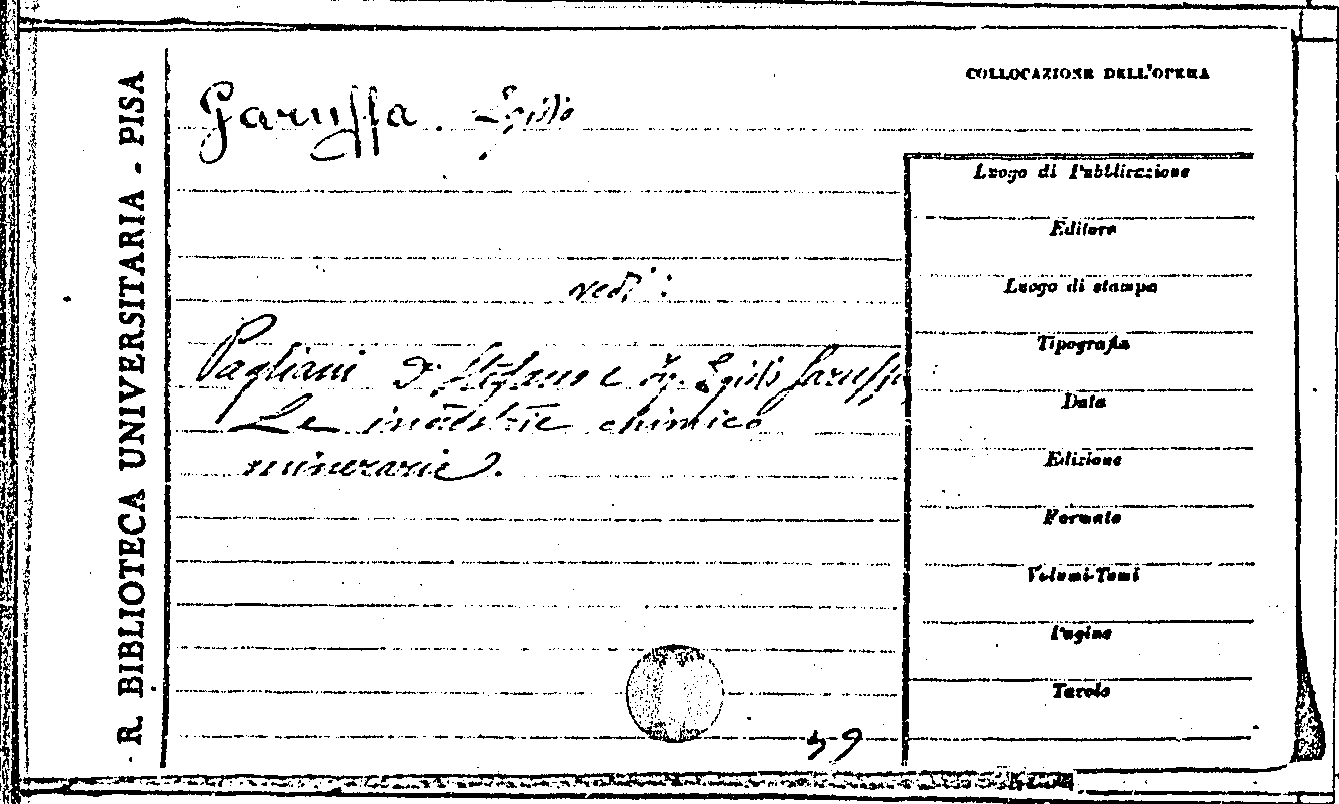 R. BIBLIOTECA UNIVERSITARIA - PISA
COLLOCAZIONE DELL'OPERA
Garuffa. Egidio
vedi:
Pagliani Dr Stefano e Ing. Egidio Garuffa
Le industrie chimico
minerarie.
Luogo di Pubblicazione
Editore
Luogo di stampa
Tipografia
Data
Edizione
Formato
Volumi-Tomi
Pagine
Tavole
49